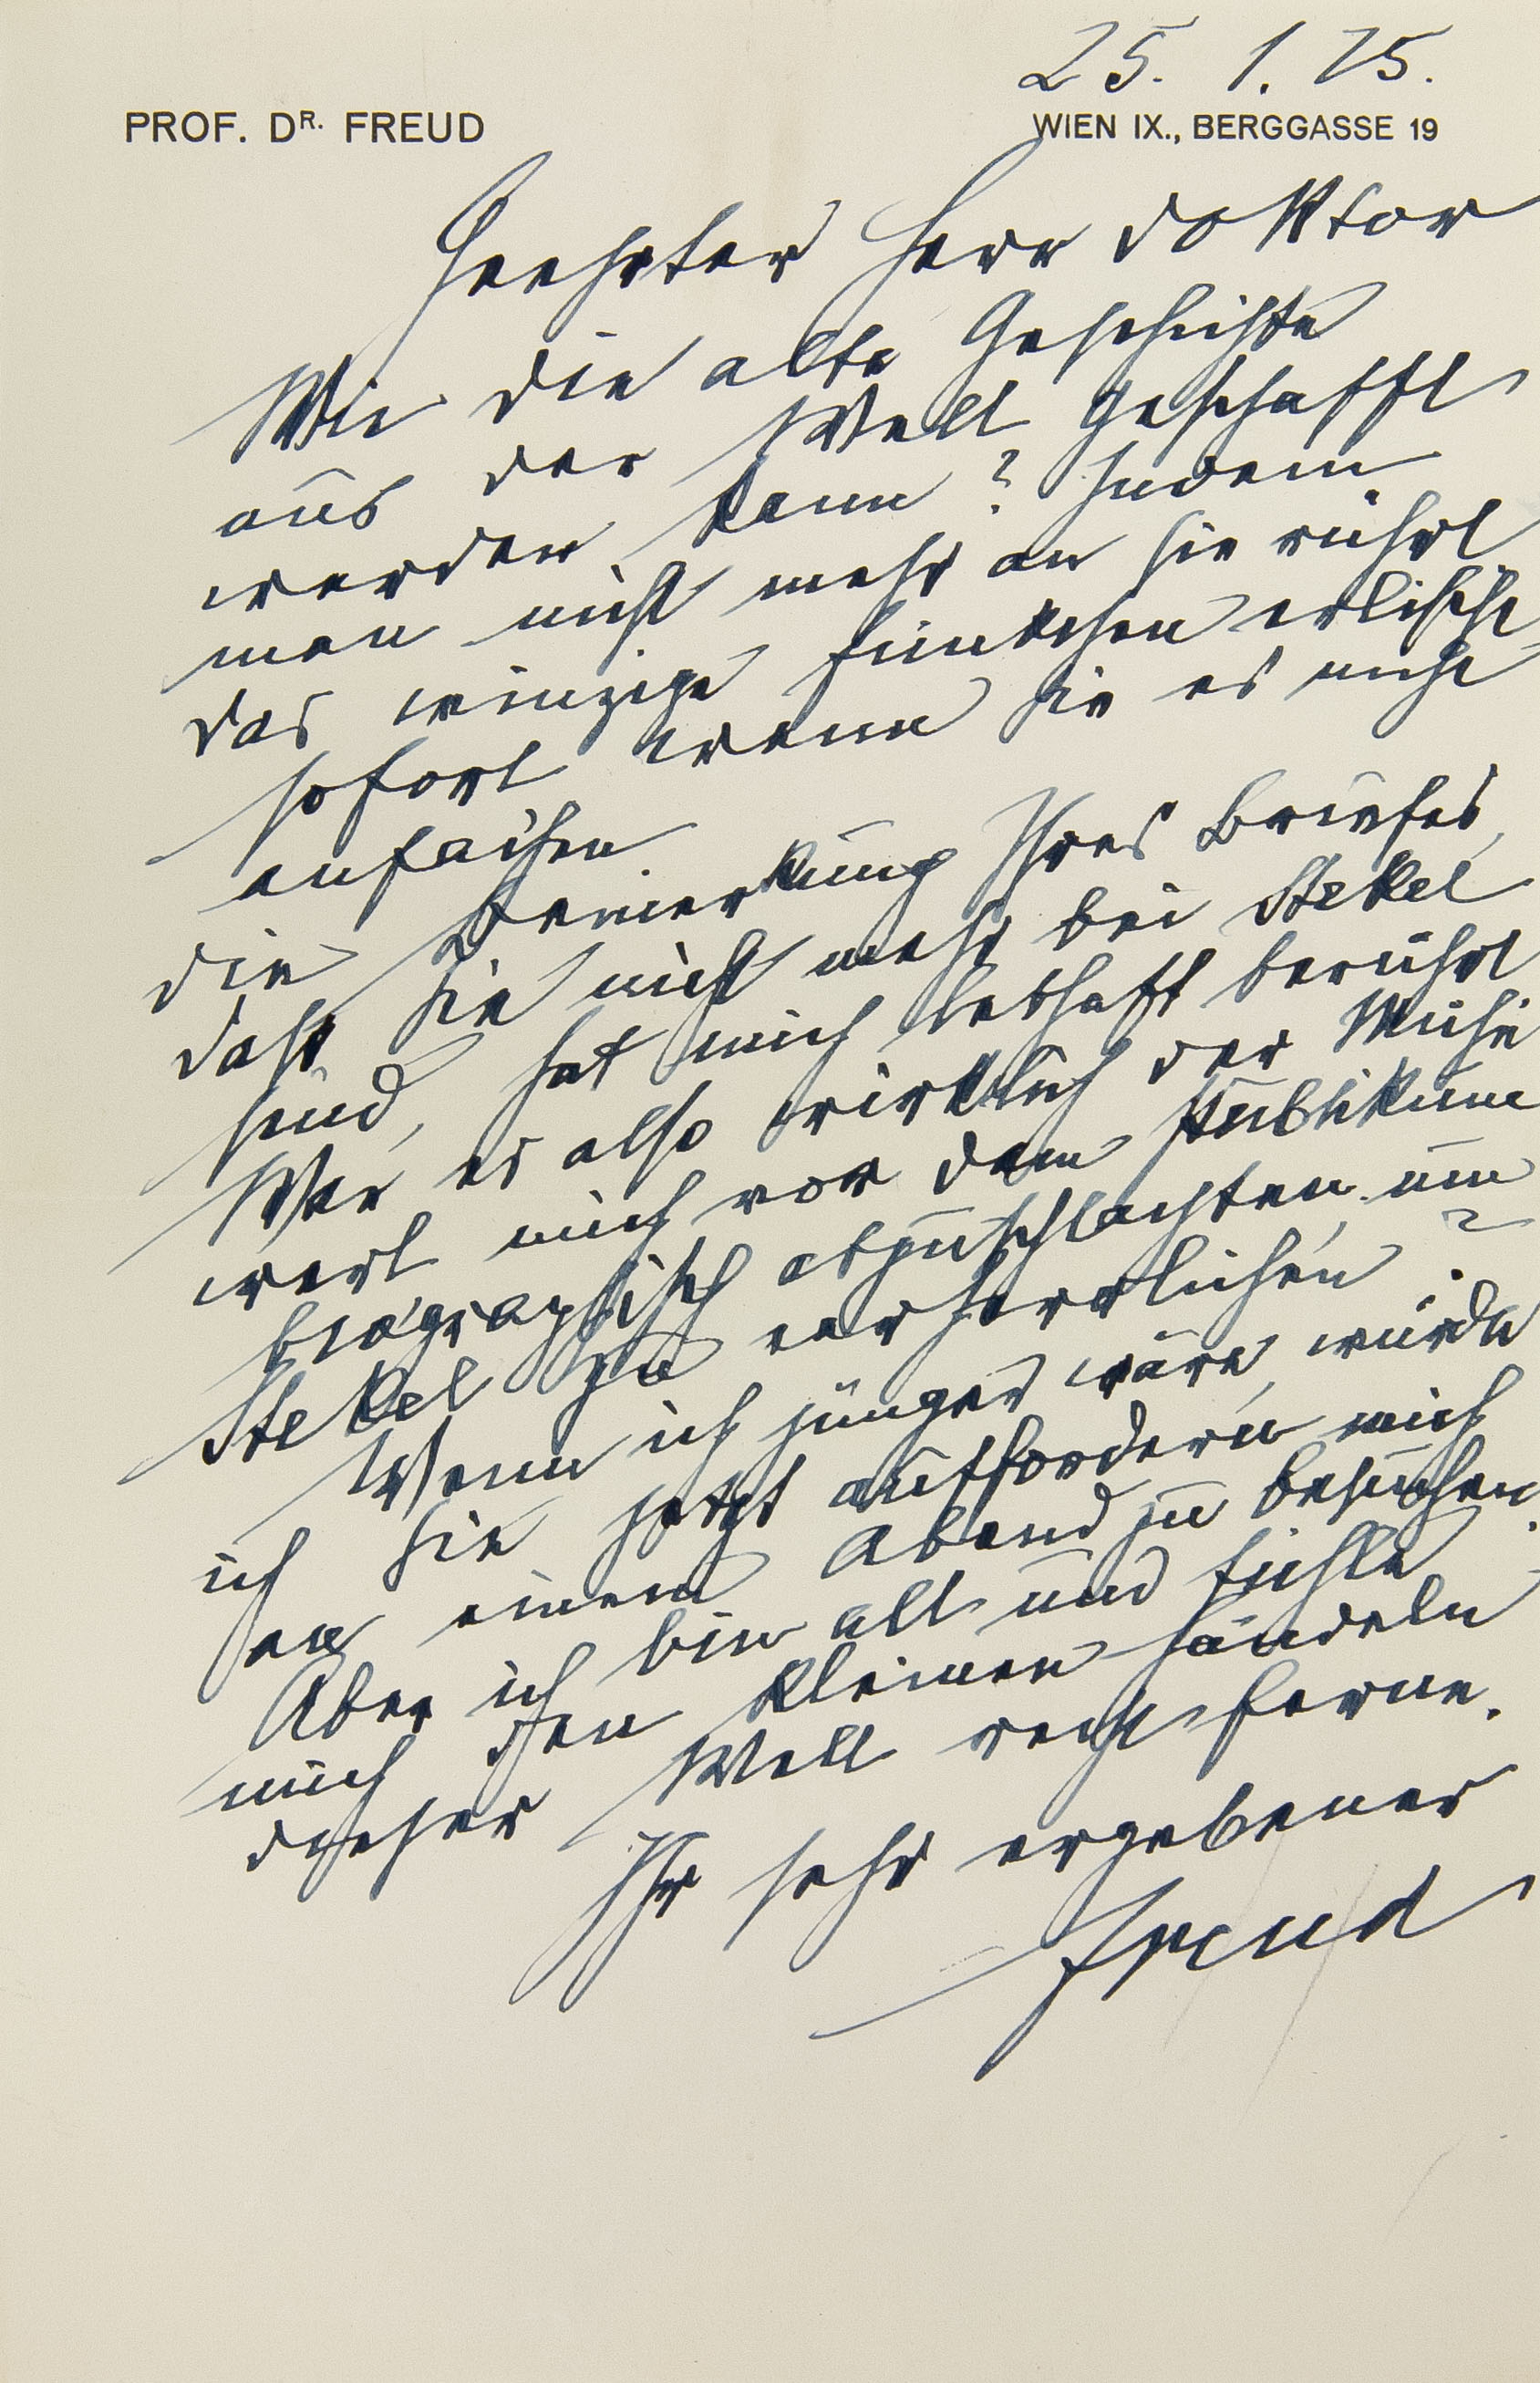 25. 1. 25.
PROF. DR. FREUD WIEN IX., BERGGASSE 19
Geehrter Herr Doktor
Wie die alte Geschichte
aus der Welt geschafft
werden kann? Indem
man nicht mehr an sie rührt
Das winzige Fünkchen erlischt
sofort wenn Sie es nicht
anfachen
Die Bemerkung Ihres Briefes,
daß Sie nicht mehr bei Stekel
sind, hat mich lebhaft berührt
War es also wirklich der Mühe
wert mich vor dem Publikum
biographisch abzuschlachten, um
Stekel zu verherrlichen?
Wenn ich jünger wäre, würde
ich Sie jetzt auffordern mich
an einem Abend zu besuchen.
Aber ich bin alt und fühle
mich den kleinen Händeln
dieser Welt recht ferne.
Ihr sehr ergebener
Freud